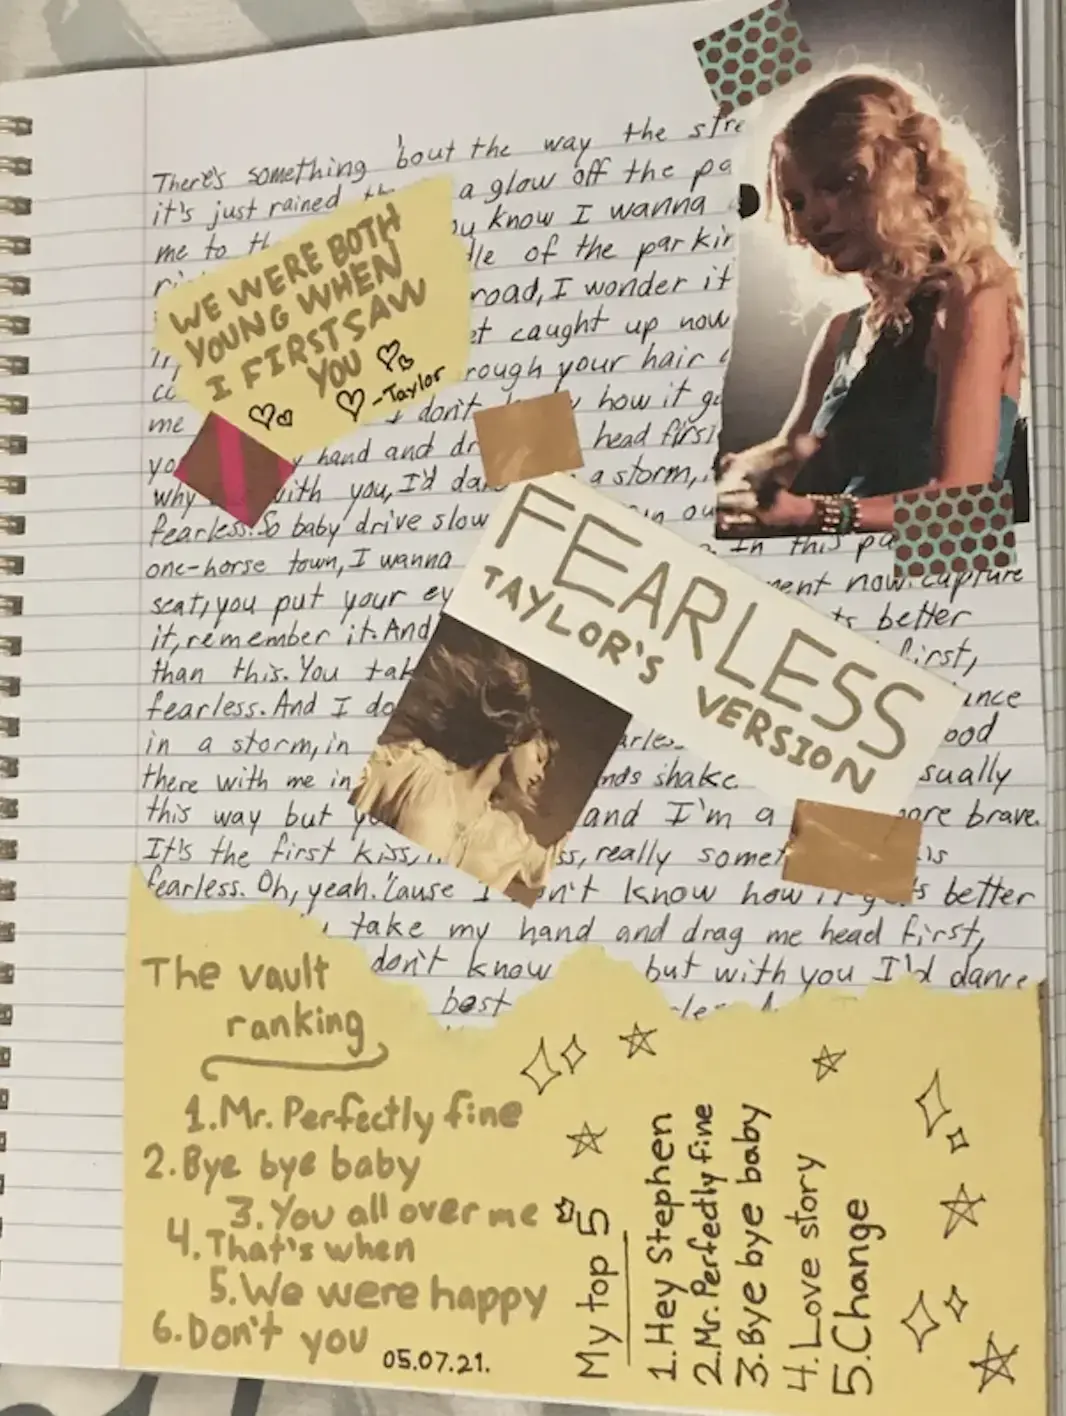 There's something 'bout the way the stre
it's just rained a glow off the pa
me to th ou know I wanna
dle of the parkin
road, I wonder if
et caught up now
rough your hair
me don't how it g
yo hand and dr head first
why with you, I'd da a storm,
fearless. So baby drive slow in ou
one-horse town, I wanna In this pa
seat, you put your ey ent now. capture
it, remember it. And better
than this. You tak first,
fearless. And I do ance
in a storm, in arles ood
there with me in nds shake sually
this way but and I'm a ore brave.
It's the first kiss, ss, really somet is
fearless. Oh, yeah. 'Cause I on't know how it g s better
take my hand and drag me head first,
don't know but with you I'd dance
best
WE WERE BOTH
YOUNG WHEN
I FIRST SAW
YOU
-Taylor
FEARLESS
TAYLOR'S VERSION
The vault
ranking
1.Mr. Perfectly fine
2.Bye bye baby
3.You all over me
4.That's when
5.We were happy
6.Don't you
05.07.21.
My top 5
1.Hey Stephen
2.Mr. Perfectly fine
3.Bye bye baby
4.Love story
5.Change